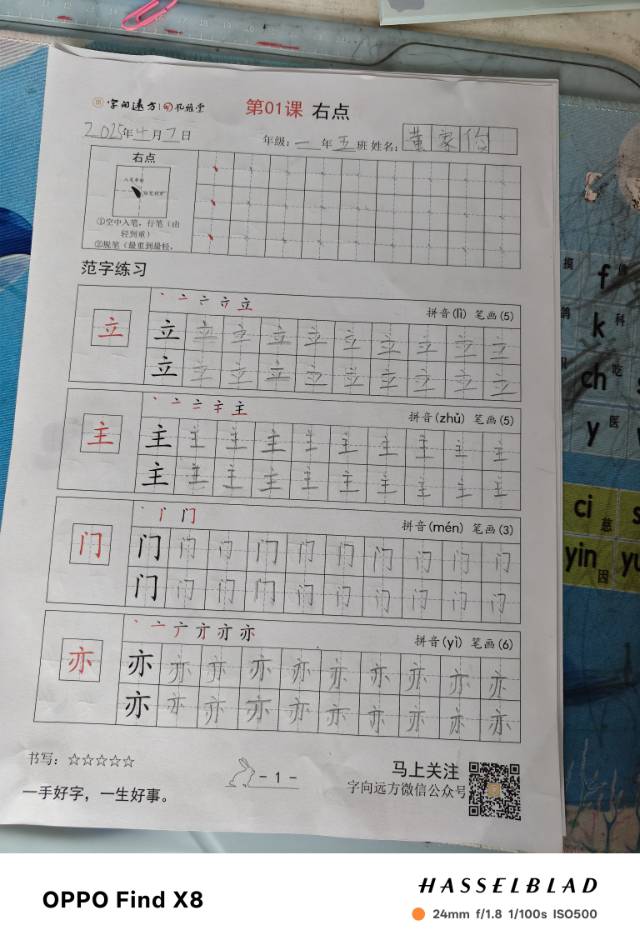 字向远方
第01课 右点
2025年十月二日
年级：一年五班 姓名：董家
右点
①空中入笔，行笔（由
轻到重）
②脱笔（最重到最轻，
范字练习
立
拼音(lì) 笔画(5)
立 立 立 立 立 立 立 立 立 立
立 立 立 立 立 立 立 立 立 立
主
拼音(zhǔ) 笔画(5)
主 主 主 主 主 主 主 主 主 主
主 主 主 主 主 主 主 主 主 主
门
拼音(mén) 笔画(3)
门 门 门 门 门 门 门 门 门 门
门 门 门 门 门 门 门 门 门 门
亦
拼音(yì) 笔画(6)
亦 亦 亦 亦 亦 亦 亦 亦 亦 亦
亦 亦 亦 亦 亦 亦 亦 亦 亦 亦
书写：☆☆☆☆☆
一手好字，一生好事。
- 1 -
马上关注
字向远方微信公众号
f
k 科
ch 吃
y 医
ci 慈
yin 因
yu
OPPO Find X8
HASSELBLAD
24mm f/1.8 1/100s ISO500